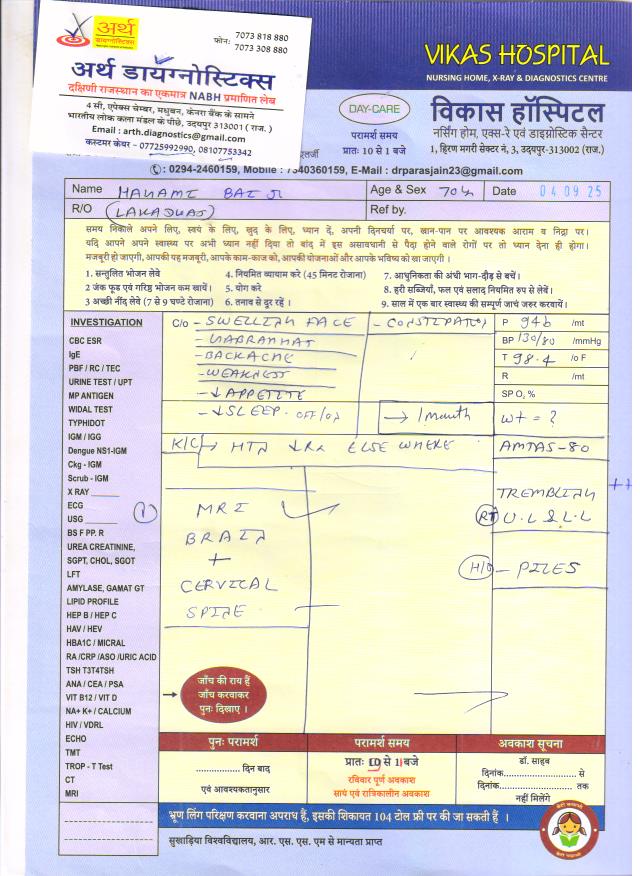 अर्थ
डायग्नोस्टिक्स
फोन: 7073 818 880
7073 308 880
अर्थ डायग्नोस्टिक्स
दक्षिणी राजस्थान का एकमात्र NABH प्रमाणित लेब
4 सी, एपेक्स चेम्बर, मधुबन, केनरा बैंक के सामने
भारतीय लोक कला मंडल के पीछे, उदयपुर 313001 ( राज. )
Email : arth.diagnostics@gmail.com
कस्टमर केयर – 07725992990, 08107753342
VIKAS HOSPITAL
NURSING HOME, X-RAY & DIAGNOSTICS CENTRE
DAY-CARE
विकास हॉस्पिटल
परामर्श समय
नर्सिंग होम, एक्स-रे एवं डाइग्नोस्टिक सैन्टर
प्रातः 10 से 1 बजे
1, हिरण मगरी सेक्टर नं, 3, उदयपुर-313002 (राज.)
: 0294-2460159, Mobile : 7340360159, E-Mail : drparasjain23@gmail.com
Name MANAMI BAI JI Age & Sex 70y Date 04 09 25
R/O (LAKADWAS) Ref by.
समय निकाले अपने लिए, स्वयं के लिए, खुद के लिए, ध्यान दें, अपनी दिनचर्या पर, खान-पान पर आवश्यक आराम व निद्रा पर।
यदि आपने अपने स्वास्थ्य पर अभी ध्यान नहीं दिया तो बांद में इस असावधानी से पैदा होने वाले रोगों पर तो ध्यान देना ही होगा।
मजबूरी हो जाएगी, आपकी यह मजबूरी, आपके काम-काज को, आपकी योजनाओं और आपके भविष्य को खा जाएगी।
1. सन्तुलित भोजन लेवे 4. नियमित व्यायाम करे (45 मिनट रोजाना) 7. आधुनिकता की अंधी भाग-दौड़ से बचें।
2 जंक फूड एवं गरिष्ठ भोजन कम खायें। 5. योग करे 8. हरी सब्जियाँ, फल एवं सलाद नियमित रुप से लेवें।
3 अच्छी नींद लेवे (7 से 9 घण्टे रोजाना) 6. तनाव से दूर रहें। 9. साल में एक बार स्वास्थ्य की सम्पूर्ण जाचं जरुर करवायें।
INVESTIGATION
CBC ESR
IgE
PBF / RC / TEC
URINE TEST / UPT
MP ANTIGEN
WIDAL TEST
TYPHIDOT
IGM / IGG
Dengue NS1-IGM
Ckg - IGM
Scrub - IGM
X RAY
ECG
USG
BS F PP. R
UREA CREATININE,
SGPT, CHOL, SGOT
LFT
AMYLASE, GAMAT GT
LIPID PROFILE
HEP B / HEP C
HAV / HEV
HBA1C / MICRAL
RA /CRP /ASO /URIC ACID
TSH T3T4TSH
ANA / CEA / PSA
VIT B12 / VIT D
NA+ K+ / CALCIUM
HIV / VDRL
ECHO
TMT
TROP - T Test
CT
MRI
C/o - SWELLING FACE - CONSTIPATION
- GABRAHAT
- BACKACHE
- WEAKNESS
- ↓ APPETITE
- ↓ SLEEP. OFF/ON → 1 month
K/C/ → HTN ↓Rx ELSE WHERE
P 94b /mt
BP 130/80 /mmHg
T 98.4 /o F
R /mt
SP O, %
wt = ?
AMTAS-80
TREMBLING ++
RT U.L & L.L
H/O - PILES
1 MRI
BRAIN
+
CERVICAL
SPINE
जाँच की राय हैं
जाँच करवाकर
पुनः दिखाए ।
पुनः परामर्श
................. दिन बाद
एवं आवश्यकतानुसार
परामर्श समय
प्रातः 10 से 1 बजे
रविवार पूर्ण अवकाश
सायं एवं रात्रिकालीन अवकाश
अवकाश सूचना
डॉ. साहब
दिनांक........................ से
दिनांक........................ तक
नहीं मिलेंगे
भ्रूण लिंग परिक्षण करवाना अपराध हैं, इसकी शिकायत 104 टोल फ्री पर की जा सकती हैं ।
सुखाड़िया विश्वविद्यालय, आर. एस. एस. एम से मान्यता प्राप्त